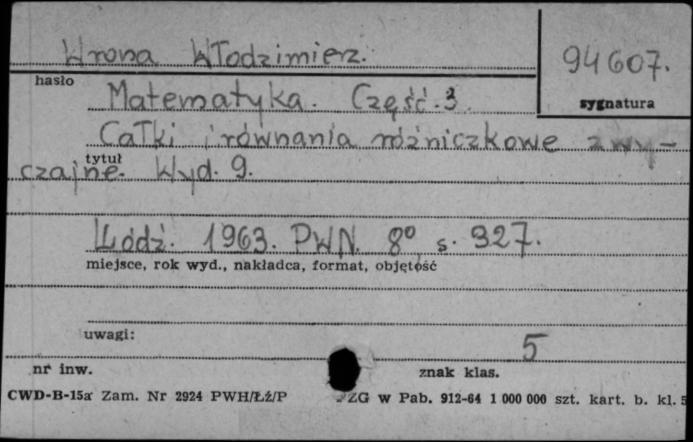 Wrona Włodzimierz.
94607.
hasło
sygnatura
Matematyka. Część.3.
Całki i równania różniczkowe zwy-
tytuł
czajne. Wyd. 9.
Łódź. 1963. PWN. 8° s. 327.
miejsce, rok wyd., nakładca, format, objętość
uwagi:
5
nr inw.
znak klas.
CWD-B-15a Zam. Nr 2924 PWH/Łź/P
ZG w Pab. 912-64 1 000 000 szt. kart. b. kl. 5